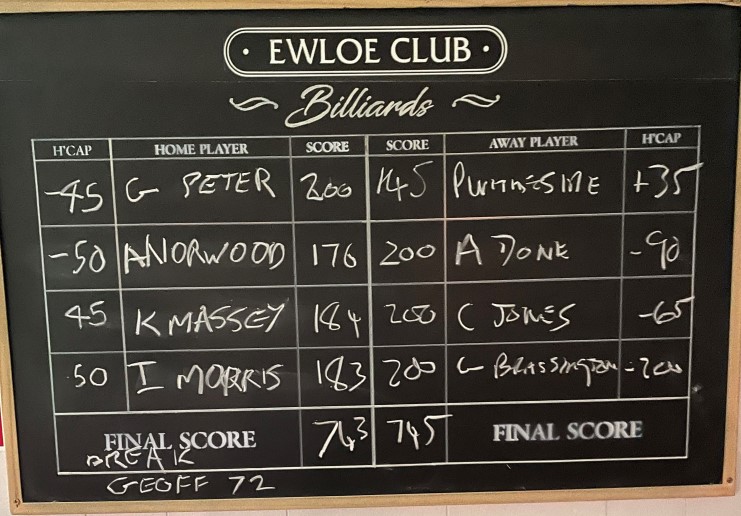 · EWLOE CLUB ·
Billiards
H'CAP HOME PLAYER SCORE SCORE AWAY PLAYER H'CAP
-45 G PETER 200 145 +35
-50 A NORWOOD 176 200 A DONE -90
45 K MASSEY 184 200 C JONES -65
50 I MORRIS 183 200 G BRASSINGTON -200
FINAL SCORE 743 745 FINAL SCORE
BREAK
GEOFF 72